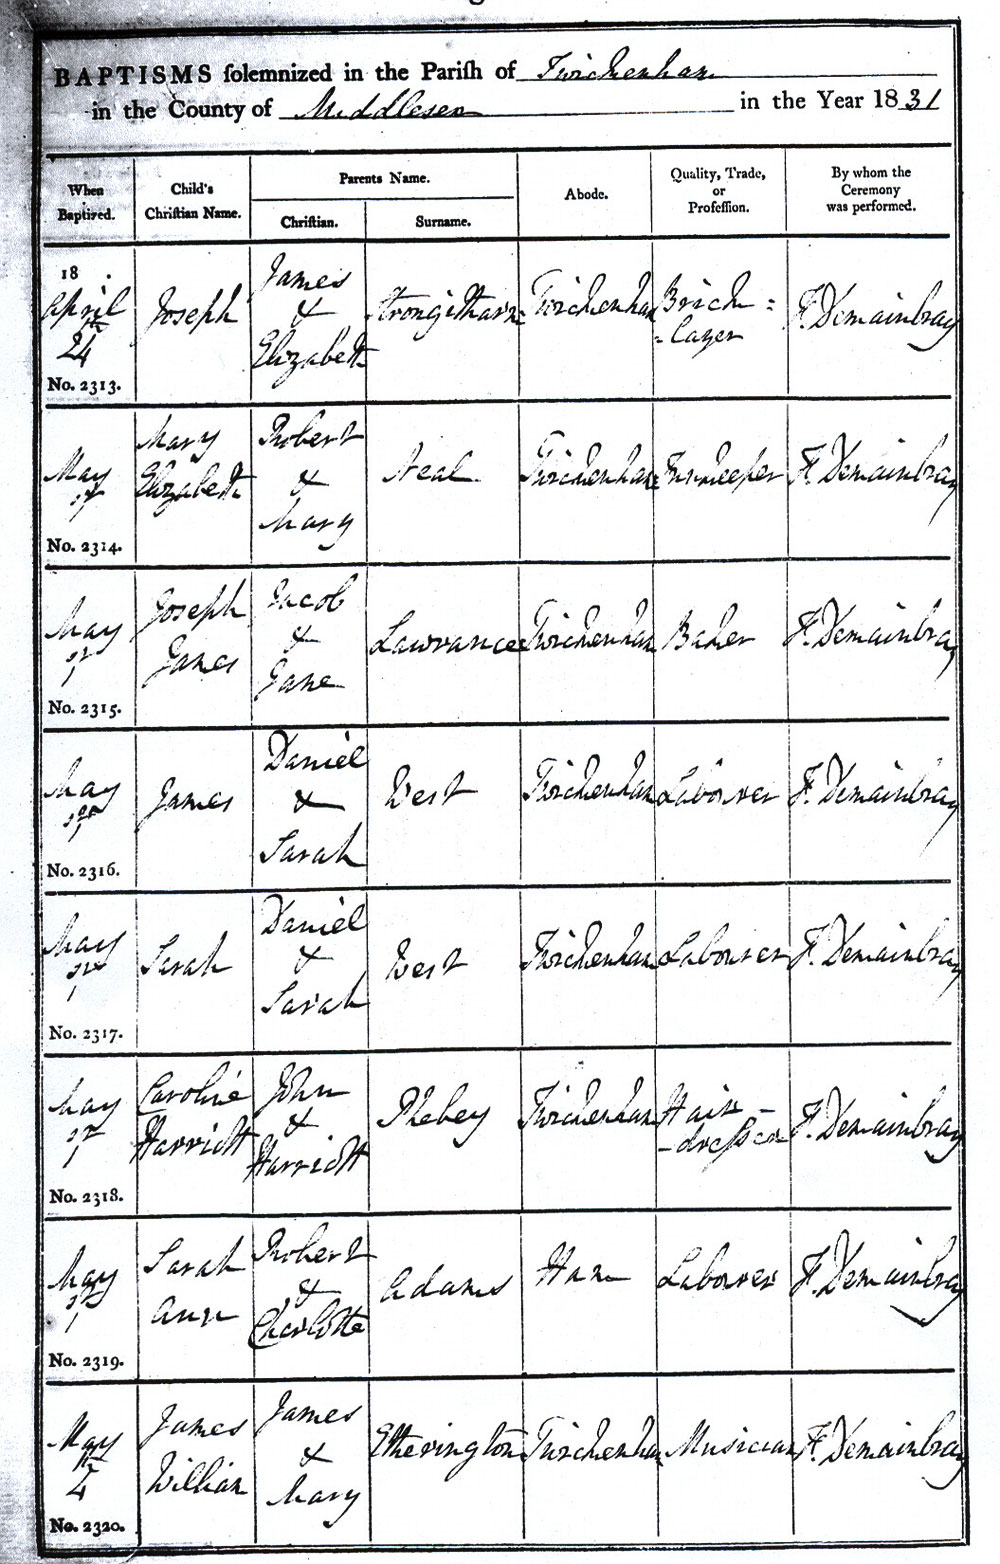 BAPTISMS solemnized in the Parish of Twickenham
in the County of Middlesex in the Year 1831
When Baptized.
Child's Christian Name.
Parents Name.
Christian.
Surname.
Abode.
Quality, Trade, or Profession.
By whom the Ceremony was performed.
18
April
24th
No. 2313.
Joseph
James
&
Elizabeth
Strongitharm
Twickenham
Brick=
=layer
F. Demainbray
May
1st
No. 2314.
Mary
Elizabeth
Robert
&
Mary
Neal
Twickenham
Innkeeper
F. Demainbray
May
1st
No. 2315.
Joseph
James
Jacob
&
Jane
Lawrance
Twickenham
Baker
F. Demainbray
May
1st
No. 2316.
James
Daniel
&
Sarah
West
Twickenham
Labourer
F. Demainbray
May
1st
No. 2317.
Sarah
Daniel
&
Sarah
West
Twickenham
Labourer
F. Demainbray
May
1st
No. 2318.
Caroline
Harriott
John
&
Harriott
Plebey
Twickenham
Hair-
-dresser
F. Demainbray
May
1st
No. 2319.
Sarah
Ann
Robert
&
Charlotte
Adams
Ham
Labourer
F. Demainbray
May
4th
No. 2320.
James
William
James
&
Mary
Etherington
Twickenham
Musician
F. Demainbray